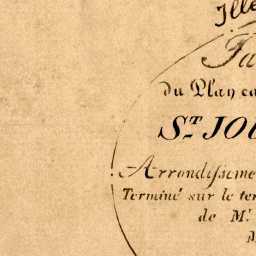 Ille
Ta
du Plan ca
ST. JOU
Arrondisseme
Terminé sur le ter
de Mr.
M